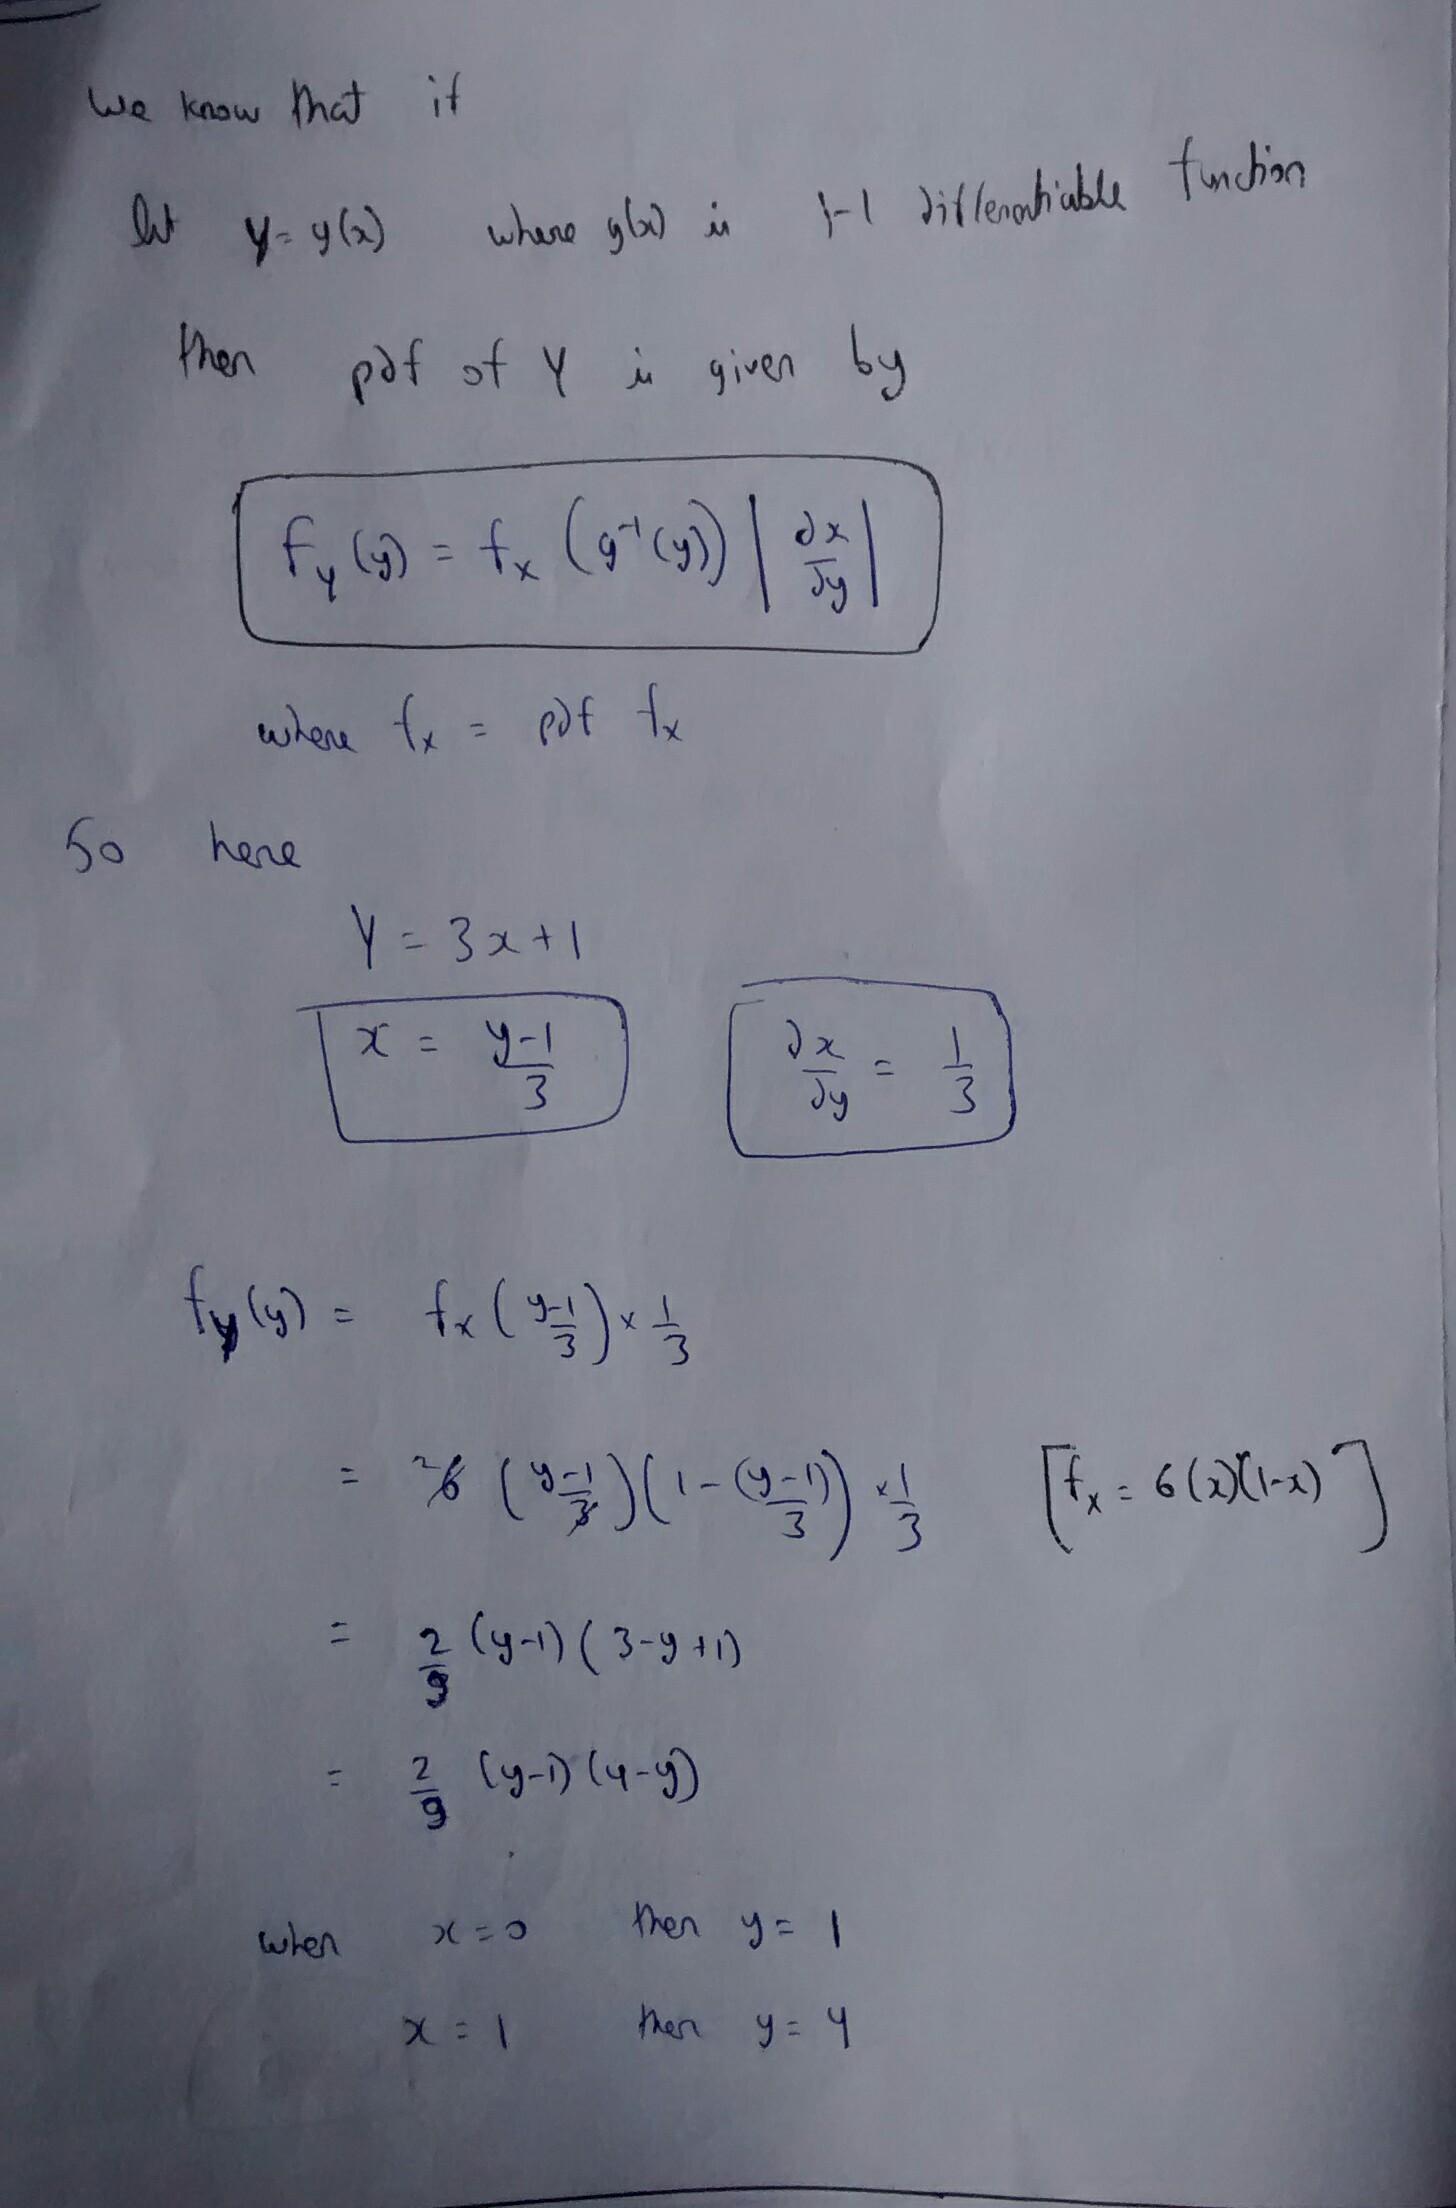 We know that if
let y = g(x) where g(x) is 1-1 differentiable function
then pdf of Y is given by
f_Y(y) = f_x (g⁻¹(y)) |∂x/∂y|
where f_x = pdf f_x
So here
Y = 3x+1
x = (y-1)/3    ∂x/∂y = 1/3
f_Y(y) = f_x ((y-1)/3) × 1/3
= 6 ((y-1)/3)(1-(y-1)/3) × 1/3 [f_x = 6(x)(1-x)]
= 2/9 (y-1)(3-y+1)
= 2/9 (y-1)(4-y)
when x=0 then y=1
x=1 then y=4